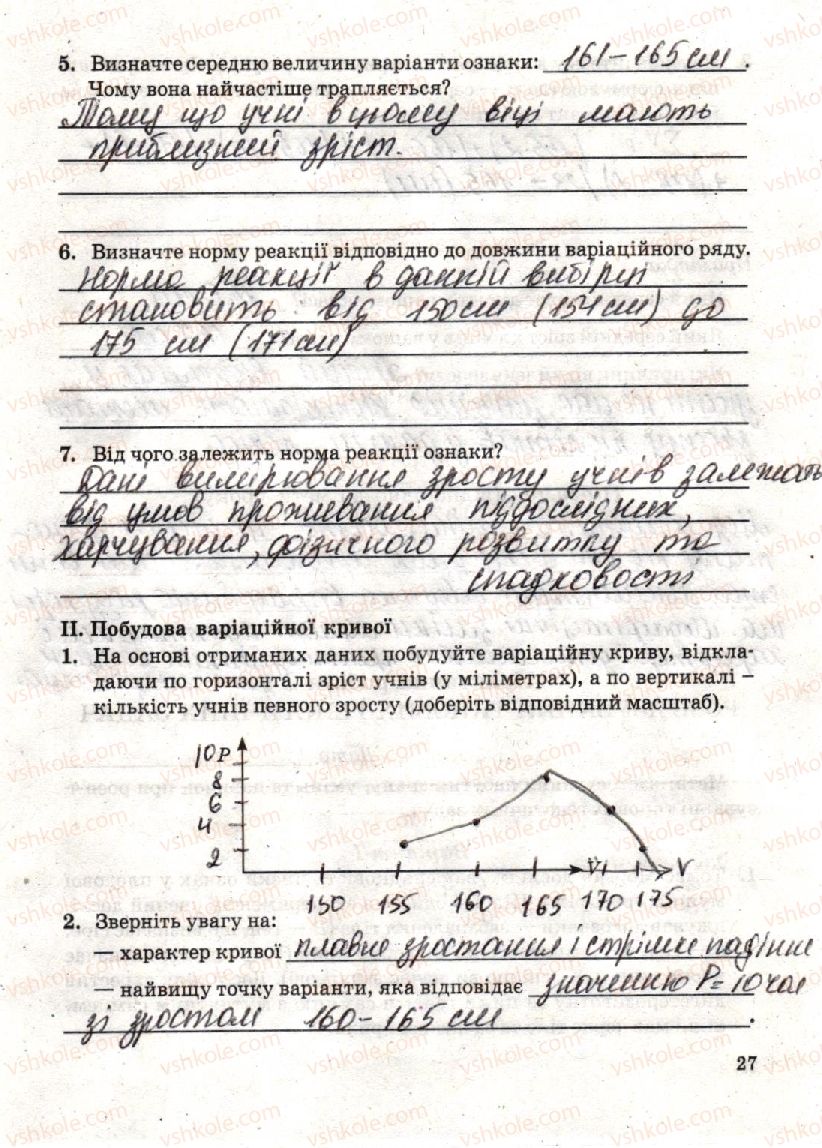 5. Визначте середню величину варіанти ознаки: 161 – 165 см.
Чому вона найчастіше трапляється?
Тому що учні в цьому віці мають
приблизний зріст.
6. Визначте норму реакції відповідно до довжини варіаційного ряду.
Норма реакції в данній вибірці
становить від 150 см (154 см) до
175 см (171 см)
7. Від чого залежить норма реакції ознаки?
Дані вимірювання зросту учнів залежать
від умов проживання піддослідних,
харчування, фізичного розвитку та
спадковості
II. Побудова варіаційної кривої
1. На основі отриманих даних побудуйте варіаційну криву, відкла-
даючи по горизонталі зріст учнів (у міліметрах), а по вертикалі –
кількість учнів певного зросту (доберіть відповідний масштаб).
10 P
8
6
4
2
V V
150 155 160 165 170 175
2. Зверніть увагу на:
— характер кривої плавне зростання і стрімке падіння
— найвищу точку варіанти, яка відповідає значенню P = 10 чол
зі зростом 160 – 165 см.
27